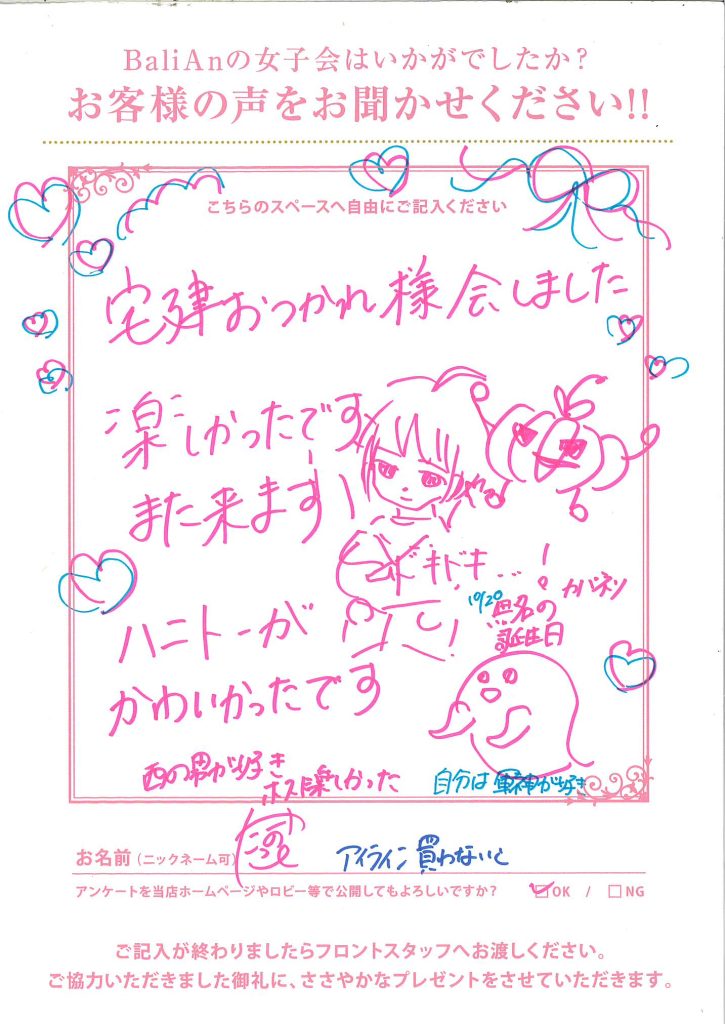 BaliAnの女子会はいかがでしたか?
お客様の声をお聞かせください!!
こちらのスペースへ自由にご記入ください
宅建おつかれ様会しました
楽しかったです
また来ます!
ドキドキ…!
10/20
無名の
カバネリ
誕生日
ハニトーが
かわいかったです
西の男が好き
楽しかった
自分は軍神が好き
お名前(ニックネーム可)
アイライン買わないと
アンケートを当店ホームページやロビー等で公開してもよろしいですか? OK / NG
ご記入が終わりましたらフロントスタッフへお渡しください。
ご協力いただきました御礼に、ささやかなプレゼントをさせていただきます。